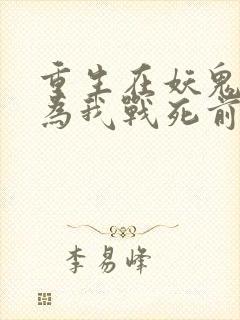 重生在妖鬼
為我戰死前
李易峰